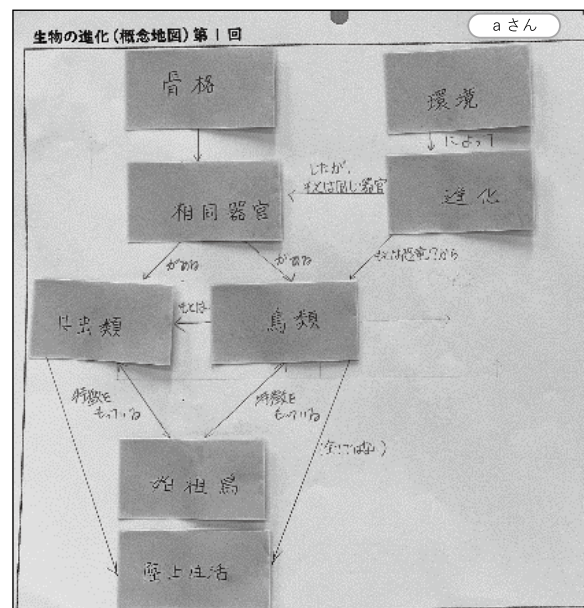 生物の進化(概念地図)第1回
aさん
骨格
環境
によって
したが、
もとは同じ器官
相同器官
進化
がある
がある
もとは恐竜?から
は虫類
もとは
鳥類
特徴を
もっている
特徴を
もっている
(全てではない)
始祖鳥
陸上生活